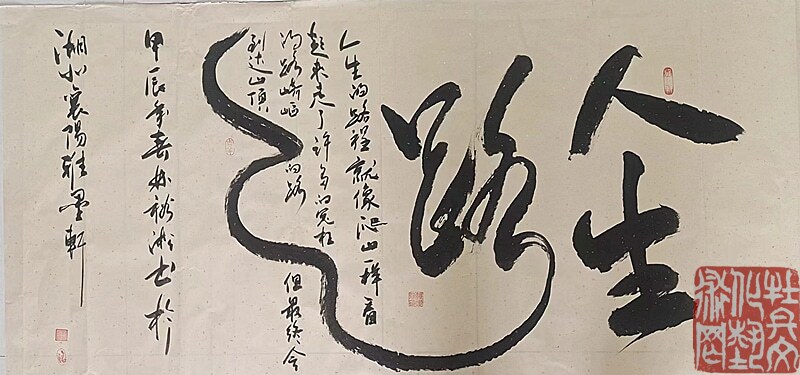 人生
路
人生的路程就像爬山一样看
起来走了许多的冤枉
的路崎岖的路但最终会
到达山顶
甲辰年春林裕书於
湖北襄陽雅墨軒